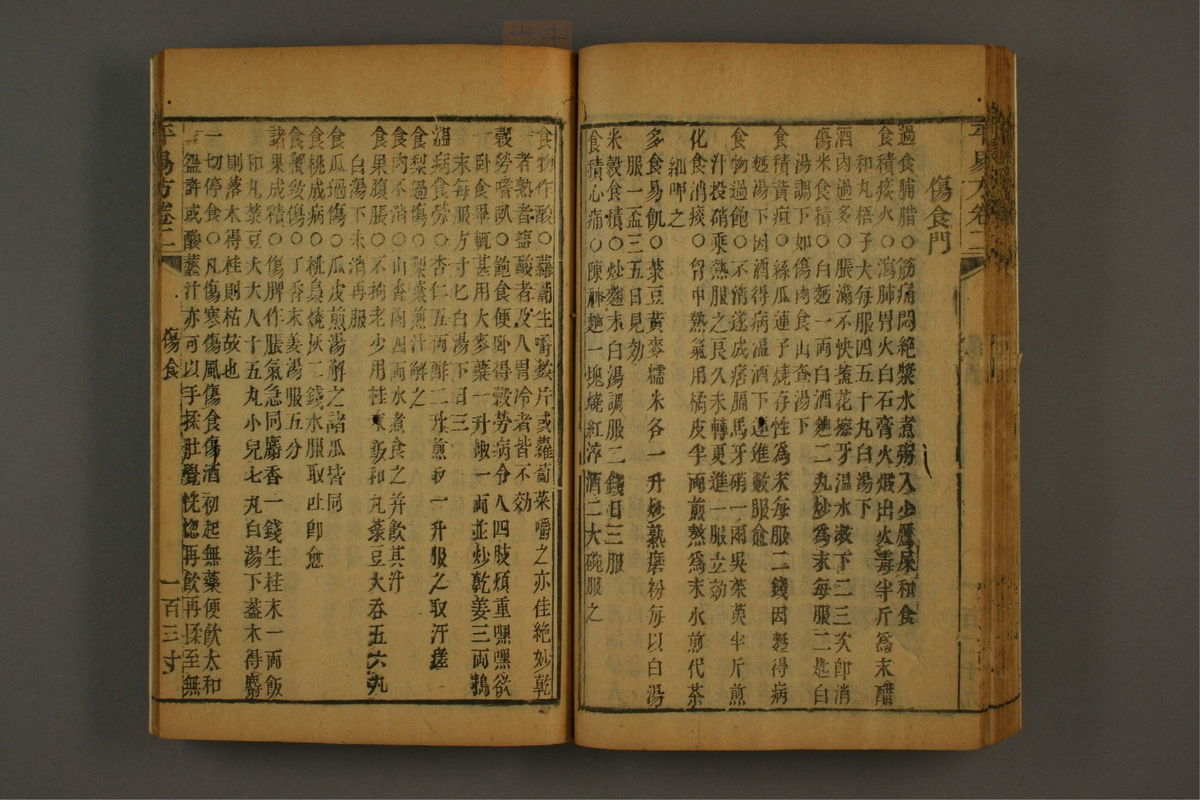 平易方卷二
傷食門
過食脯腊○筋痛悶絕漿水煮粥入少鷹屎和食
食積痰火○瀉肺胃火白石膏火煅出火毒半斤為末醋
和丸梧子大每服四五十丸白湯下
酒肉過多○脹滿不快鹽花擦牙溫水漱下二三次即消
傷米食積○白麫一兩白酒麯二丸炒為末每服二匙白
湯調下如傷肉食山查湯下
食積黃疸○絲瓜連子燒存性為末每服二錢因麫得病
麫湯下因酒得病溫酒下連進數服愈
食物過飽○不消遂成痞膈馬牙硝一兩吳茱萸半斤煎
汁投硝乘熱服之良久未轉更進一服立効
化食消痰○胷中熱氣用橘皮半兩煎熬為末水煎代茶
細呷之
多食易飢○菉豆黃麥糯米各一升炒熟磨粉每以白湯
服一盃三五日見効
米穀食積○炒麯末白湯調服二錢日三服
食積心痛○陳神麯一塊燒紅淬酒二大碗服之
食物作酸○蘿蔔生嚼數片或蘿蔔菜嚼之亦佳絕妙乾
者熟者鹽酸者及人胃冷者皆不効
穀勞嗜臥○飽食便臥得穀勞病令人四肢煩重嘿嘿欲
臥食畢輒甚用大麥蘗一升椒一兩並炒乾姜三兩搗
末每服方寸匕白湯下日三
溫病食勞○杏仁五兩酢二升煎一升服之取汗瘥
食梨過傷○梨葉煎汁解之
食肉不消○山查肉四兩水煮食之并飲其汁
食果腹脹○不拘老少用桂末飯和丸菉豆大吞五六丸
白湯下未消再服
食瓜過傷○瓜皮煎湯解之諸瓜皆同
食桃成病○桃梟燒灰二錢水服取吐即愈
食蟹致傷○丁香末姜湯服五分
諸果成積○傷脾作脹氣急同麝香一錢生桂末一兩飯
和丸菉豆大大人十五丸小兒七丸白湯下蓋木得麝
則落木得桂則枯故也
一切停食○凡傷寒傷風傷食傷酒初起無藥便飲太和
湯盌許或酸虀汁亦可以手揉肚覺恍惚再飲再揉至無
平易方卷二
傷食
一百三十